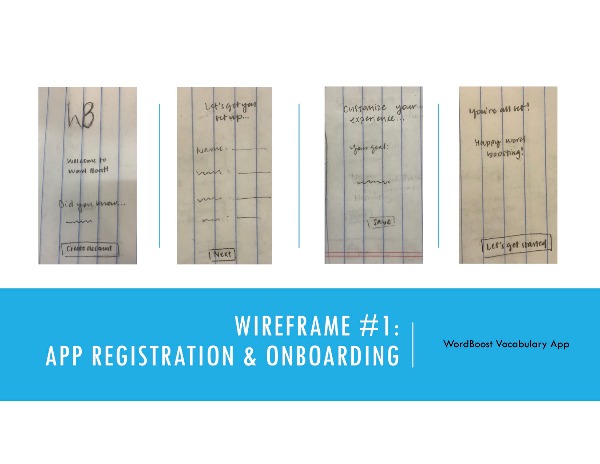 WB
Welcome to
Word Boost!
Did you know...
Create Account
Let's get you
set up...
Name:
Next
Customize your
experience...
Your goal:
Save
You're all set!
Happy word
boosting!
Let's get started
WIREFRAME #1:
APP REGISTRATION & ONBOARDING
WordBoost Vacabulary App